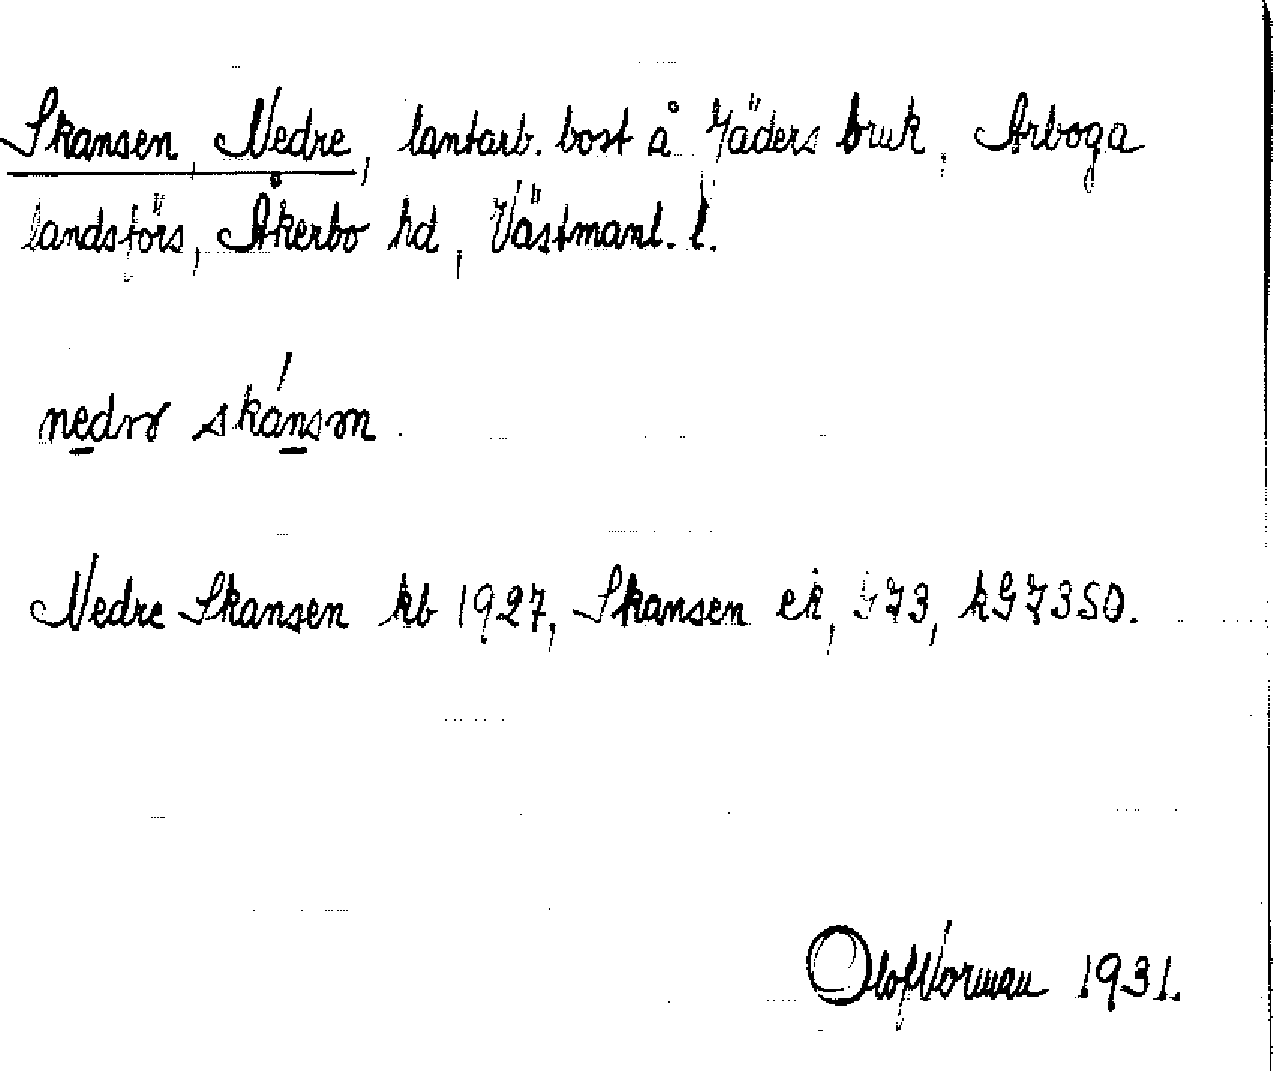 Skansen, Nedre, lantarb. bost å Jäders bruk, Arboga
landsförs, Åkerbo hd, Västmanl. l.
nedrə skánsən.
Nedre Skansen kb 1927, Skansen ek, G73, kG7350.
Olof Norman 1931.